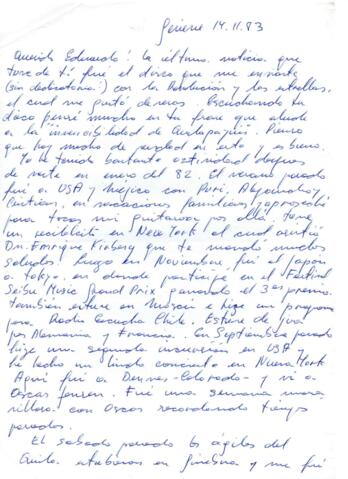 Genève 14.11.83
Querido Eduardo: la última noticia que
tuve de tí fué el disco que me enviaste
(sin dedicatoria!) con la Revolución y las estrellas,
el cual me gustó deveras. Escuchando tu
disco pensé mucho en tu frase que alude
a la invisibilidad de
que hay mucho de verdad en esto y es bueno.
Yo he tenido bastante actividad después
de verte en enero del 82. El verano pasado
fuí a USA y México con Puri, Alejandro y
Cristian, en vacaciones familiares y aproveché
para tocar mi guitarra por allá, tuve
un recibiliti en New York al cual asistió
Dn. Enrique Kirberg que te mandó muchos
saludos. Luego en Noviembre, fuí al Japón
a Tokyo, en donde participé en el Festival
Seibu Music Grand Prix ganando el 3er premio.
También estuve en Moscú e hice un programa
para Radio Escucha Chile. Estuve de jira
por Alemania y Francia. En Septiembre pasado
hice una segunda incursión en USA y
he hecho un lindo concierto en Nueva York
Aquí fuí a Denver - Colorado - y ví a
Oscar Jensen. Fué una semana mara
villosa con Oscar recordando tiempos
pasados.
El sábado pasado los agiles del
Quila. estubieron en Ginebra y me fuí